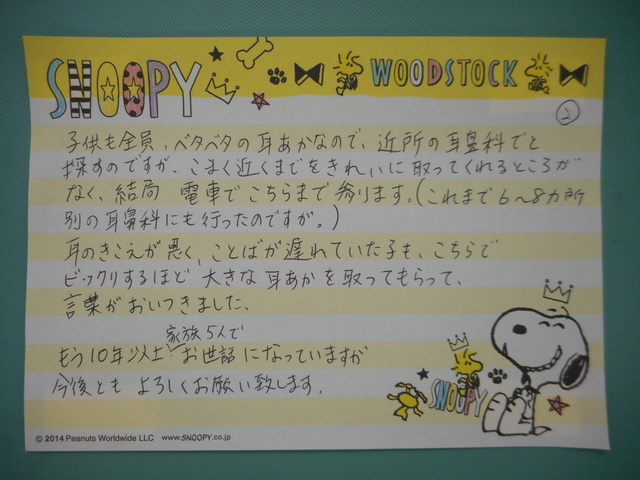 SNOOPY
WOODSTOCK
②
子供も全員、ベタベタの耳あかなので、近所の耳鼻科でと
探すのですが、こまく近くまでをきれいに取ってくれるところが
なく、結局 電車でこちらまで参ります。(これまで6〜8カ所
別の耳鼻科にも行ったのですが。)
耳のきこえが悪く、ことばが遅れていた子も、こちらで
ビックリするほど 大きな 耳あかを取ってもらって、
言葉がおいつきました、
家族5人で
もう10年以上 お世話になっていますが
今後とも よろしくお願い致します。
SNOOPY
© 2014 Peanuts Worldwide LLC www.SNOOPY.co.jp